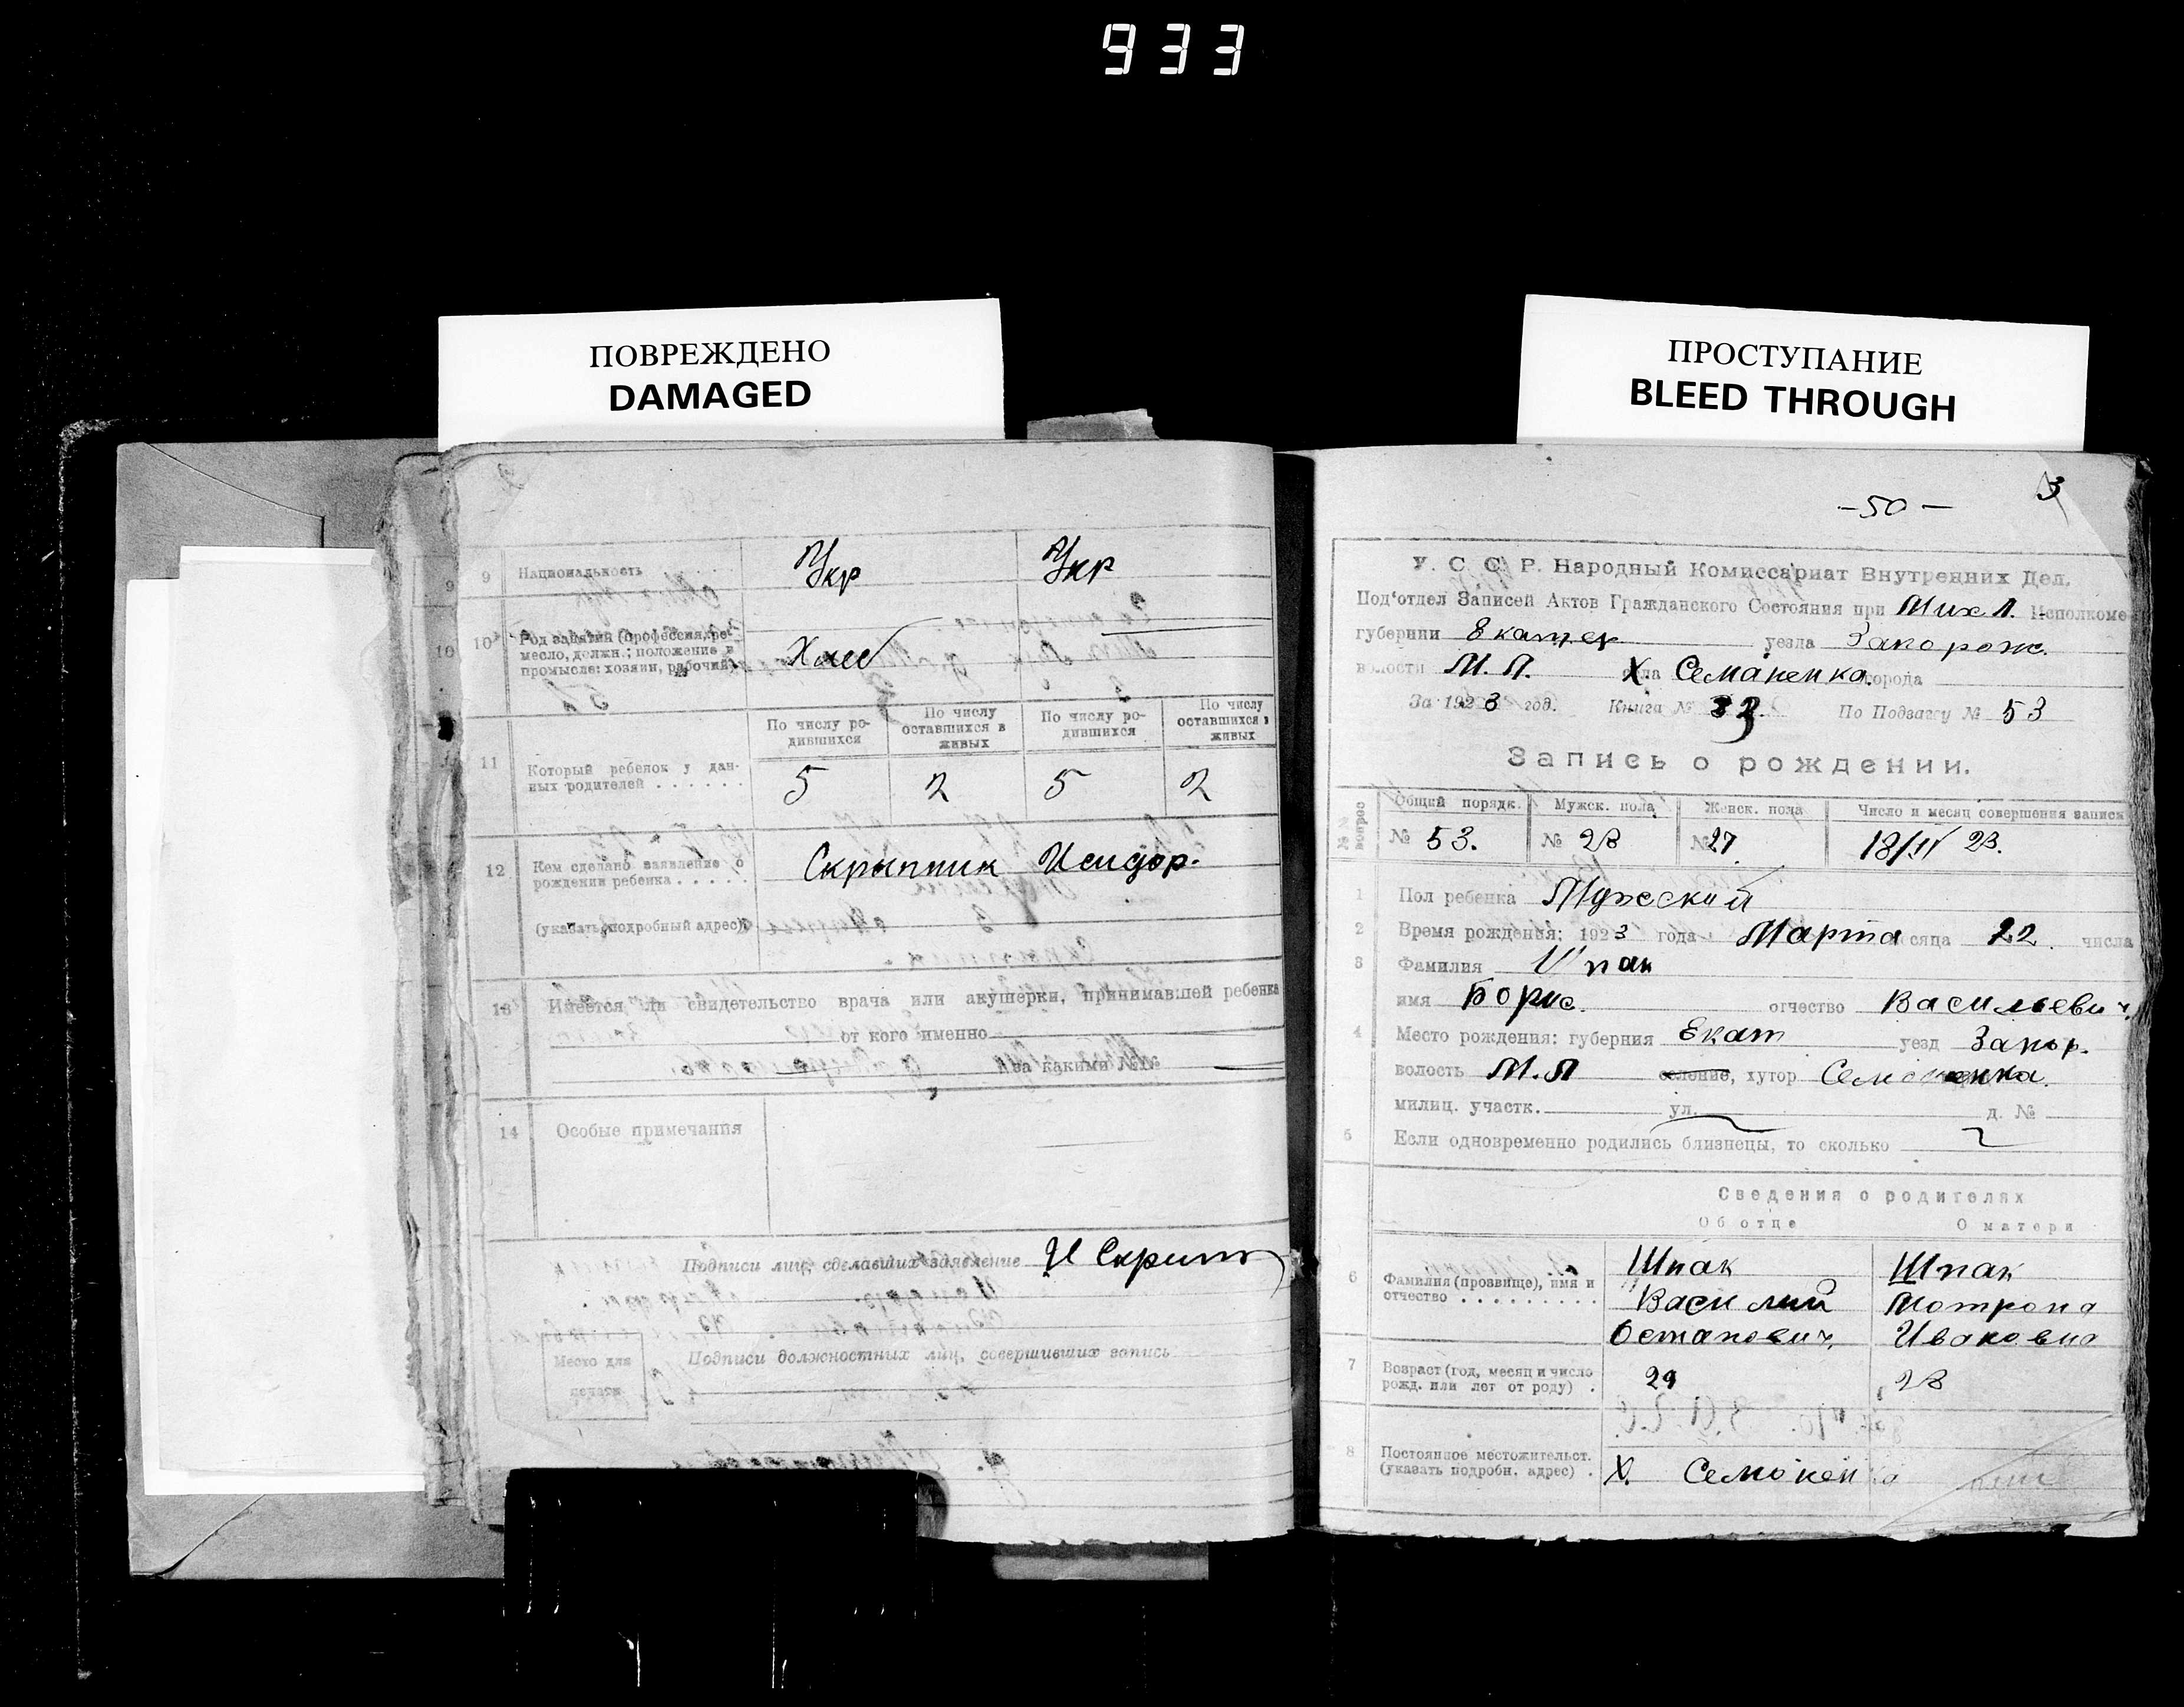 933
ПОВРЕЖДЕНО
DAMAGED
ПРОСТУПАНИЕ
BLEED THROUGH
9 Национальность Укр Укр
10 Род занятий (профессия, ре-
месло, должн.; положение в
промысле: хозяин, рабочий)
По числу ро-
дившихся
По числу
оставшихся в
живых
По числу ро-
дившихся
По числу
оставшихся в
живых
11 Который ребенок у дан-
ных родителей . . . . . . 5 2 5 2
12 Кем сделано заявление о
рождении ребенка . . . . . Скрыпник Исидор.
(указать подробный адрес)
13 Имеется ли свидетельство врача или акушерки, принимавшей ребенка
от кого именно
за какими №№
14 Особые примечания
Подписи лиц, сделавших заявление И Скрипн
Место для
печати
Подписи должностных лиц, совершивших запись
3
- 50 -
У. С. С. Р. Народный Комиссариат Внутренних Дел.
Под'отдел Записей Актов Гражданского Состояния при Мих Л. Исполкоме
губернии Екатер уезда Запорож.
волости М. Л. Х. села Семаненка. города
За 1923 год. Книга № По Подзагу № 53
Запись о рождении.
Общий порядк. Мужск. пола Женск. пола Число и месяц совершения записи
№ 53. № 28 № 27. 18/IV 23.
1 Пол ребенка Мужской
2 Время рождения: 1923 года Марта месяца 22. числа
3 Фамилия Шпак
имя Борис. отчество Васильевич.
4 Место рождения: губерния Екат уезд Запор.
волость М. Л селение, хутор Семоненка.
милиц. участк. ул. д. №
5 Если одновременно родились близнецы, то сколько
Сведения о родителях
Об отце О матери
6 Фамилия (прозвище), имя и
отчество . . . . . . . . .
Шпак
Василий
Остапович
Шпак
Мотрона
Ивановна
7 Возраст (год, месяц и число
рожд. или лет от роду) . 29 28
8 Постоянное местожительст.
(указать подробн. адрес) . Х. Семоненка